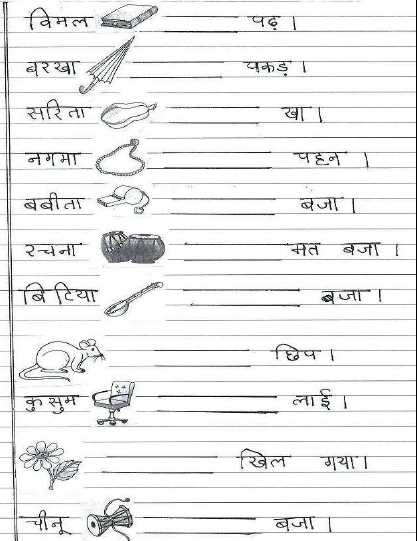 विमल पढ़ ।
बरखा पकड़ ।
सरिता खा ।
नगमा पहन ।
बबीता बजा ।
रचना मत बजा ।
बिटिया बजा ।
छिप ।
कुसुम लाई ।
खिल गया ।
चीनू बजा ।